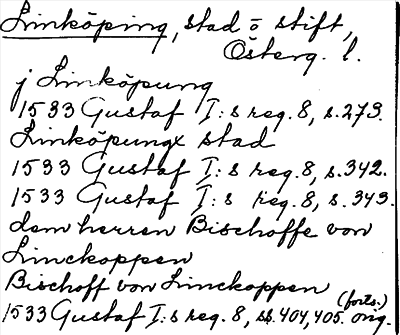 Linköping, stad o stift,
Österg. l.
j Linköpung
1533 Gustaf I:s reg. 8, s. 273.
Linköpungx stad
1533 Gustaf I:s reg. 8, s. 342.
1533 Gustaf I:s reg. 8, s. 343.
dem herren Bischoffe von
Linckoppen
Bischoff von Linckoppen
(forts.)
1533 Gustaf I:s reg. 8, ss. 404, 405. orig.